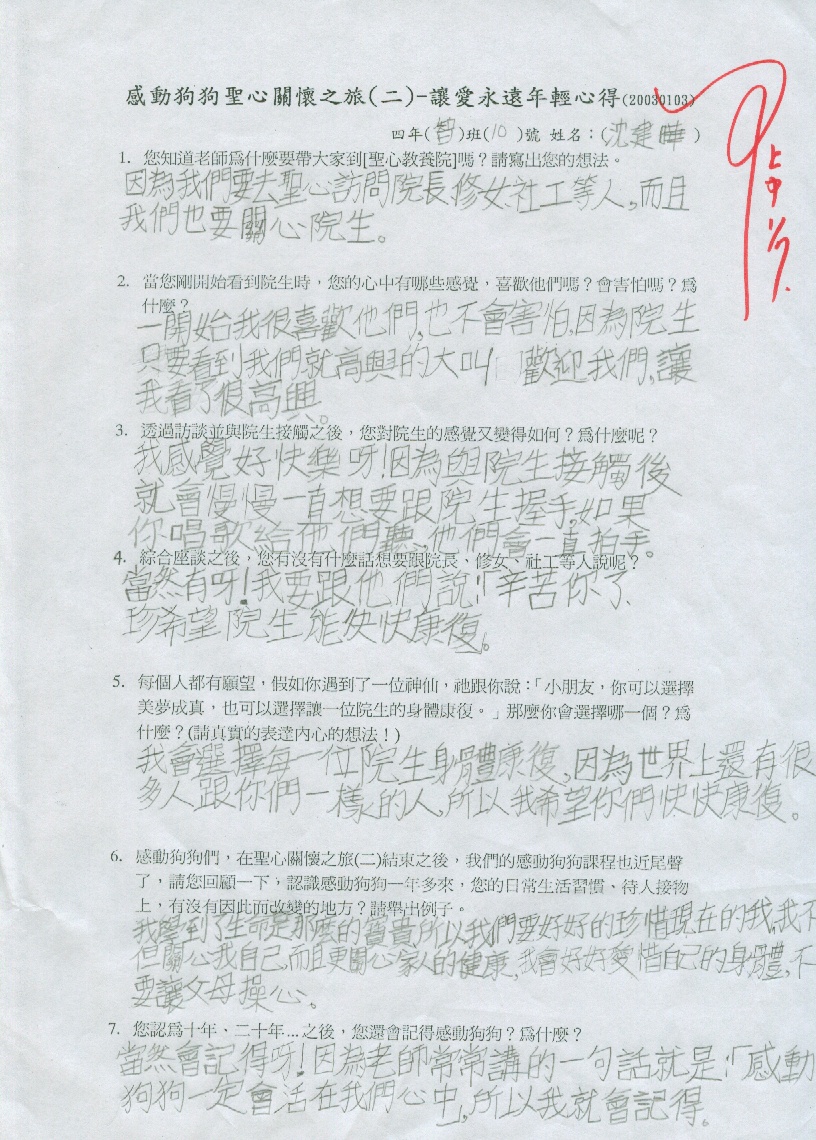 感動狗狗聖心關懷之旅(二)-讓愛永遠年輕心得(20030103)
四年(智)班(10)號 姓名：(沈建曄)
1. 您知道老師爲什麼要帶大家到[聖心教養院]嗎？請寫出您的想法。
因為我們要去聖心訪問院長修女社工等人,而且
我們也要關心院生。
2. 當您剛開始看到院生時，您的心中有哪些感覺，喜歡他們嗎？會害怕嗎？爲
什麼？
一開始我很喜歡他們,也不會害怕,因為院生
只要看到我們就高興的大叫 歡迎我們,讓
我看了很高興。
3. 透過訪談並與院生接觸之後，您對院生的感覺又變得如何？爲什麼呢？
我感覺好快樂呀!因為與院生接觸後
就會慢慢一直想要跟院生握手,如果
你唱歌給他們聽,他們會一直拍手。
4. 綜合座談之後，您有沒有什麼話想要跟院長、修女、社工等人說呢？
當然有呀!我要跟他們說!「辛苦你了、
珍希望院生能快快康復。
5. 每個人都有願望，假如你遇到了一位神仙，祂跟你說：「小朋友，你可以選擇
美夢成真，也可以選擇讓一位院生的身體康復。」那麼你會選擇哪一個？爲
什麼？(請真實的表達內心的想法！)
我會選擇每一位院生身體康復,因為世界上還有很
多人跟你們一樣的人,所以我希望你們快快康復。
6. 感動狗狗們，在聖心關懷之旅(二)結束之後，我們的感動狗狗課程也近尾聲
了，請您回顧一下，認識感動狗狗一年多來，您的日常生活習慣、待人接物
上，有沒有因此而改變的地方？請舉出例子。
我學到了生命是那麼的寶貴所以我們要好好的珍惜現在的我,我不
但關心我自己,而且更關心家人的健康,我會好好愛惜自己的身體,不
要讓父母操心。
7. 您認爲十年、二十年…之後，您還會記得感動狗狗？爲什麼？
當然會記得呀!因為老師常常講的一句話就是:「感動
狗狗一定會活在我們心中」,所以我就會記得。